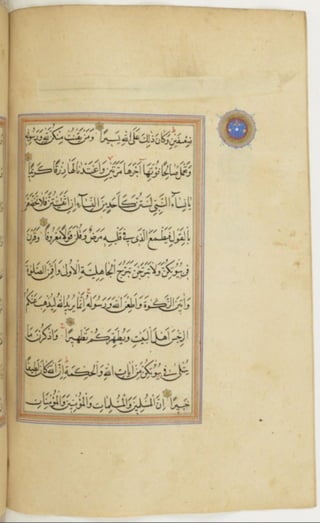 ضعفين وكان ذلك على الله يسيرا ومن يقنت منكن لله ورسوله
وتعمل صالحا نؤتها أجرها مرتين وأعتدنا لها رزقا كريما
يا نساء النبي لستن كأحد من النساء إن اتقيتن فلا تخضعن
بالقول فيطمع الذي في قلبه مرض وقلن قولا معروفا وقرن
في بيوتكن ولا تبرجن تبرج الجاهلية الأولى وأقمن الصلوة
وآتين الزكوة وأطعن الله ورسوله إنما يريد الله ليذهب عنكم
الرجس أهل البيت ويطهركم تطهيرا واذكرن ما
يتلى في بيوتكن من آيات الله والحكمة إن الله كان لطيفا
خبيرا إن المسلمين والمسلمات والمؤمنين والمؤمنات